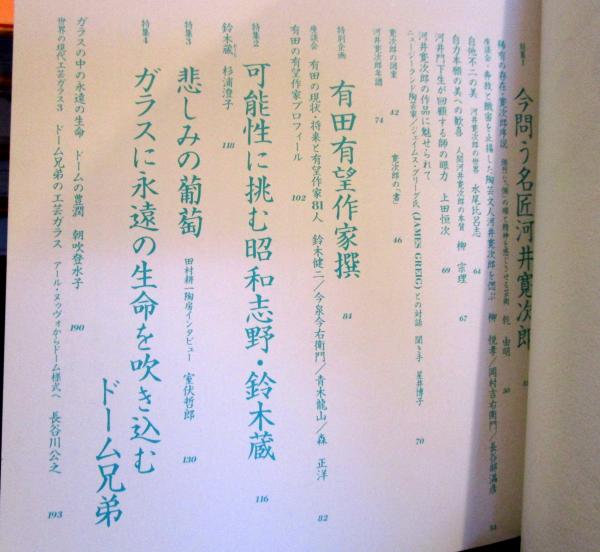 特集1
今問う名匠河井寛次郎
稀有の存在・寛次郎序説
乾 由明
50
座談会・奔放と緻密を止揚した陶芸文人河井寛次郎を偲ぶ 柳 悦孝／岡村吉右衛門／長谷部満彦
54
自他不二の美 河井寛次郎の世界 水尾比呂志
64
自力本願の美への歓喜 人間河井寛次郎の本質 柳 宗理
67
河井門下生が回顧する師の眼力 上田恒次
69
河井寛次郎の作品に魅せられて
ニュージーランド陶芸家／ジェイムス・グリーグ氏(JAMES GREIG)との対話 聞き手 星井博子
70
寛次郎の図案
42
寛次郎の「書」
46
河井寛次郎年譜
74
特別企画
有田有望作家撰
84
座談会 有田の現状・将来と有望作家81人 鈴木健二／今泉今右衛門／青木龍山／森 正洋
82
有田の有望作家プロフィール
102
特集2
可能性に挑む昭和志野・鈴木蔵
116
鈴木蔵 杉浦澄子
118
特集3
悲しみの葡萄
田村耕一陶房インタビュー 室伏哲郎
130
特集4
ガラスに永遠の生命を吹き込む
ドーム兄弟
ガラスの中の永遠の生命 ドームの豊潤 朝吹登水子
190
世界の現代工芸ガラス3 ドーム兄弟の工芸ガラス アール・ヌゥヴォからドーム様式へ 長谷川公之
193